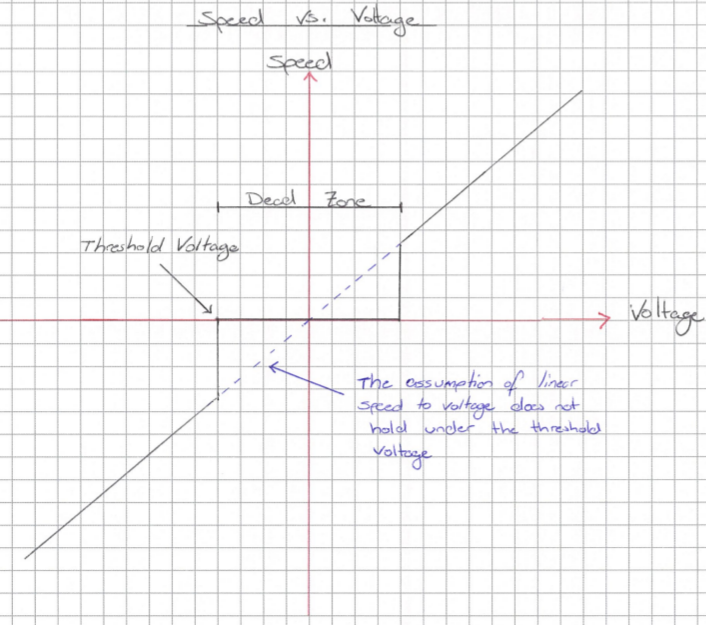 Speed vs. Voltage
Speed
Dead Zone
Threshold Voltage
Voltage
The assumption of linear
speed to voltage does not
hold under the threshold
Voltage